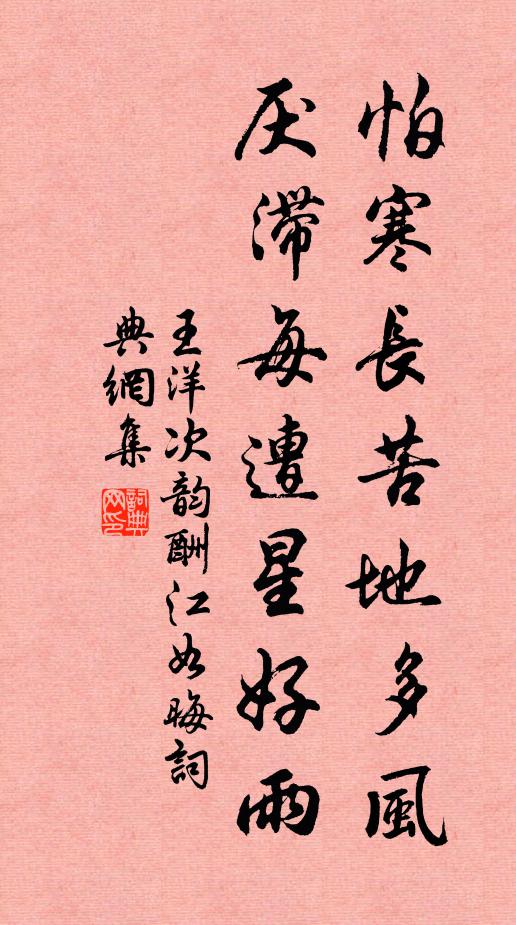 怕寒長苦地多風
厌滯每遭星好雨
王洋次韵酬江如晦詞
典網集
詞典網印